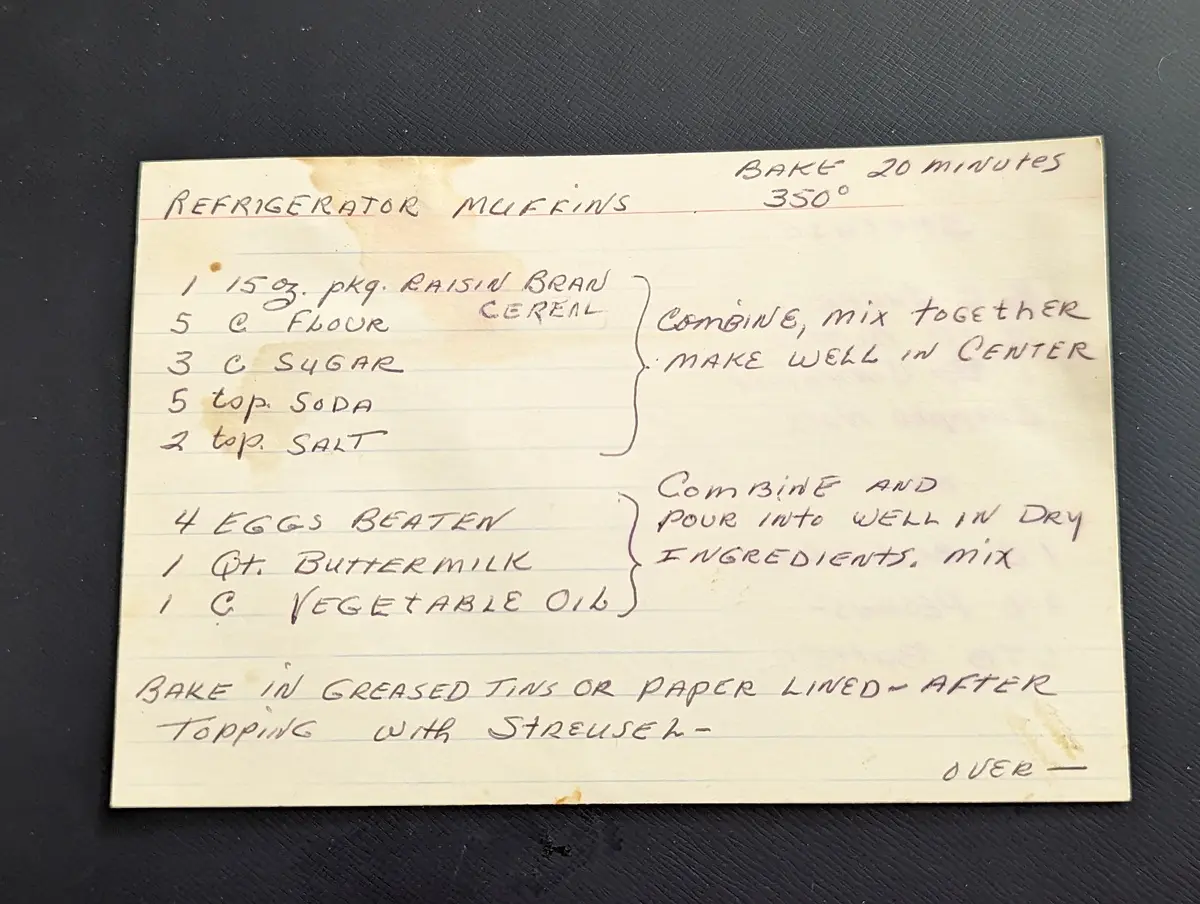 BAKE 20 MINUTES
REFRIGERATOR MUFFINS 350°
1 15 oz. pkg. RAISIN BRAN
CEREAL
5 C FLOUR
3 C SUGAR
5 tsp. SODA
2 tsp. SALT
COMBINE, MIX TOGETHER
MAKE WELL IN CENTER
4 EGGS BEATEN
1 Qt. BUTTERMILK
1 C VEGETABLE OIL
COMBINE AND
POUR INTO WELL IN DRY
INGREDIENTS. MIX
BAKE IN GREASED TINS OR PAPER LINED - AFTER
TOPPING with STREUSEL -
OVER —